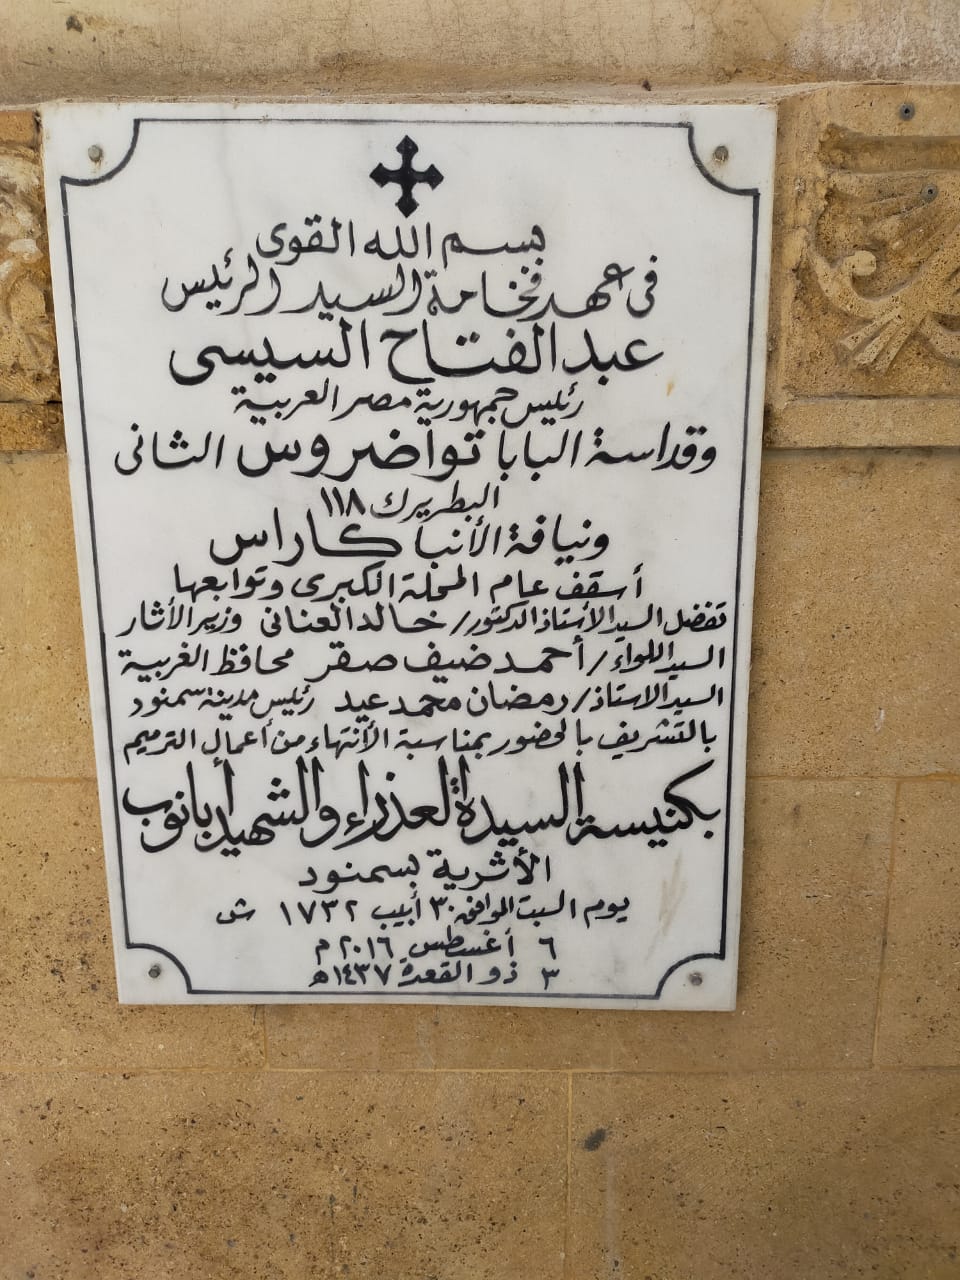 بسم الله القوى
فى عهد فخامة السيد الرئيس
عبد الفتاح السيسى
رئيس جمهورية مصر العربية
وقداسة البابا تواضروس الثانى
البطريرك ١١٨
ونيافة الأنبا كاراس
أسقف عام المحلة الكبرى وتوابعها
تفضل السيد الأستاذ الدكتور/ خالد العنانى وزير الأثار
السيد اللواء/ أحمد ضيف صقر محافظ الغربية
السيد الاستاذ/ رمضان محمد عيد رئيس مدينة سمنود
بالتشريف بالحضور بمناسبة الأنتهاء من أعمال الترميم
بكنيسة السيدة العذراء والشهيد أبانوب
الأثرية بسمنود
يوم السبت الموافق ٣٠ أبيب ١٧٣٢ ش
٦ أغسطس ٢٠١٦ م
٣ ذو القعدة ١٤٣٧ هـ